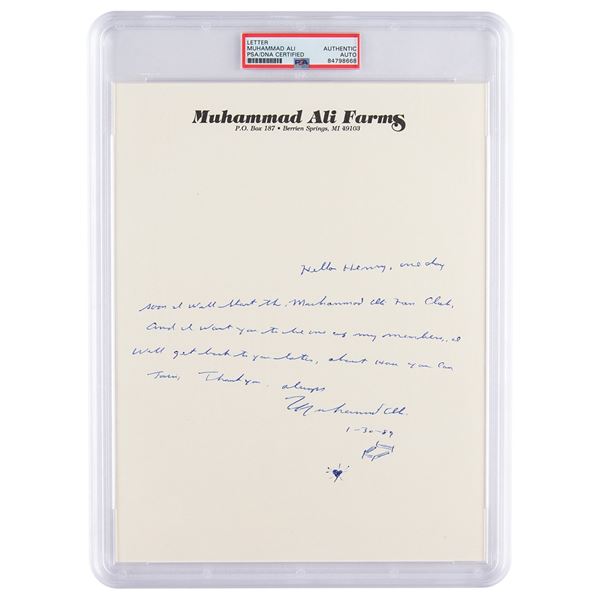 LETTER
MUHAMMAD ALI
PSA/DNA CERTIFIED
AUTHENTIC
AUTO
84798668
PSA
Muhammad Ali Farms
P.O. Box 187 • Berrien Springs, MI 49103
Hello Henry, one day
soon I will start the, Muhammad Ali Fan Club,
And I want you to be one of my members, I
Will get back to you later, about how you can
Join, Thank you. always
Muhammad Ali.
1-30-89